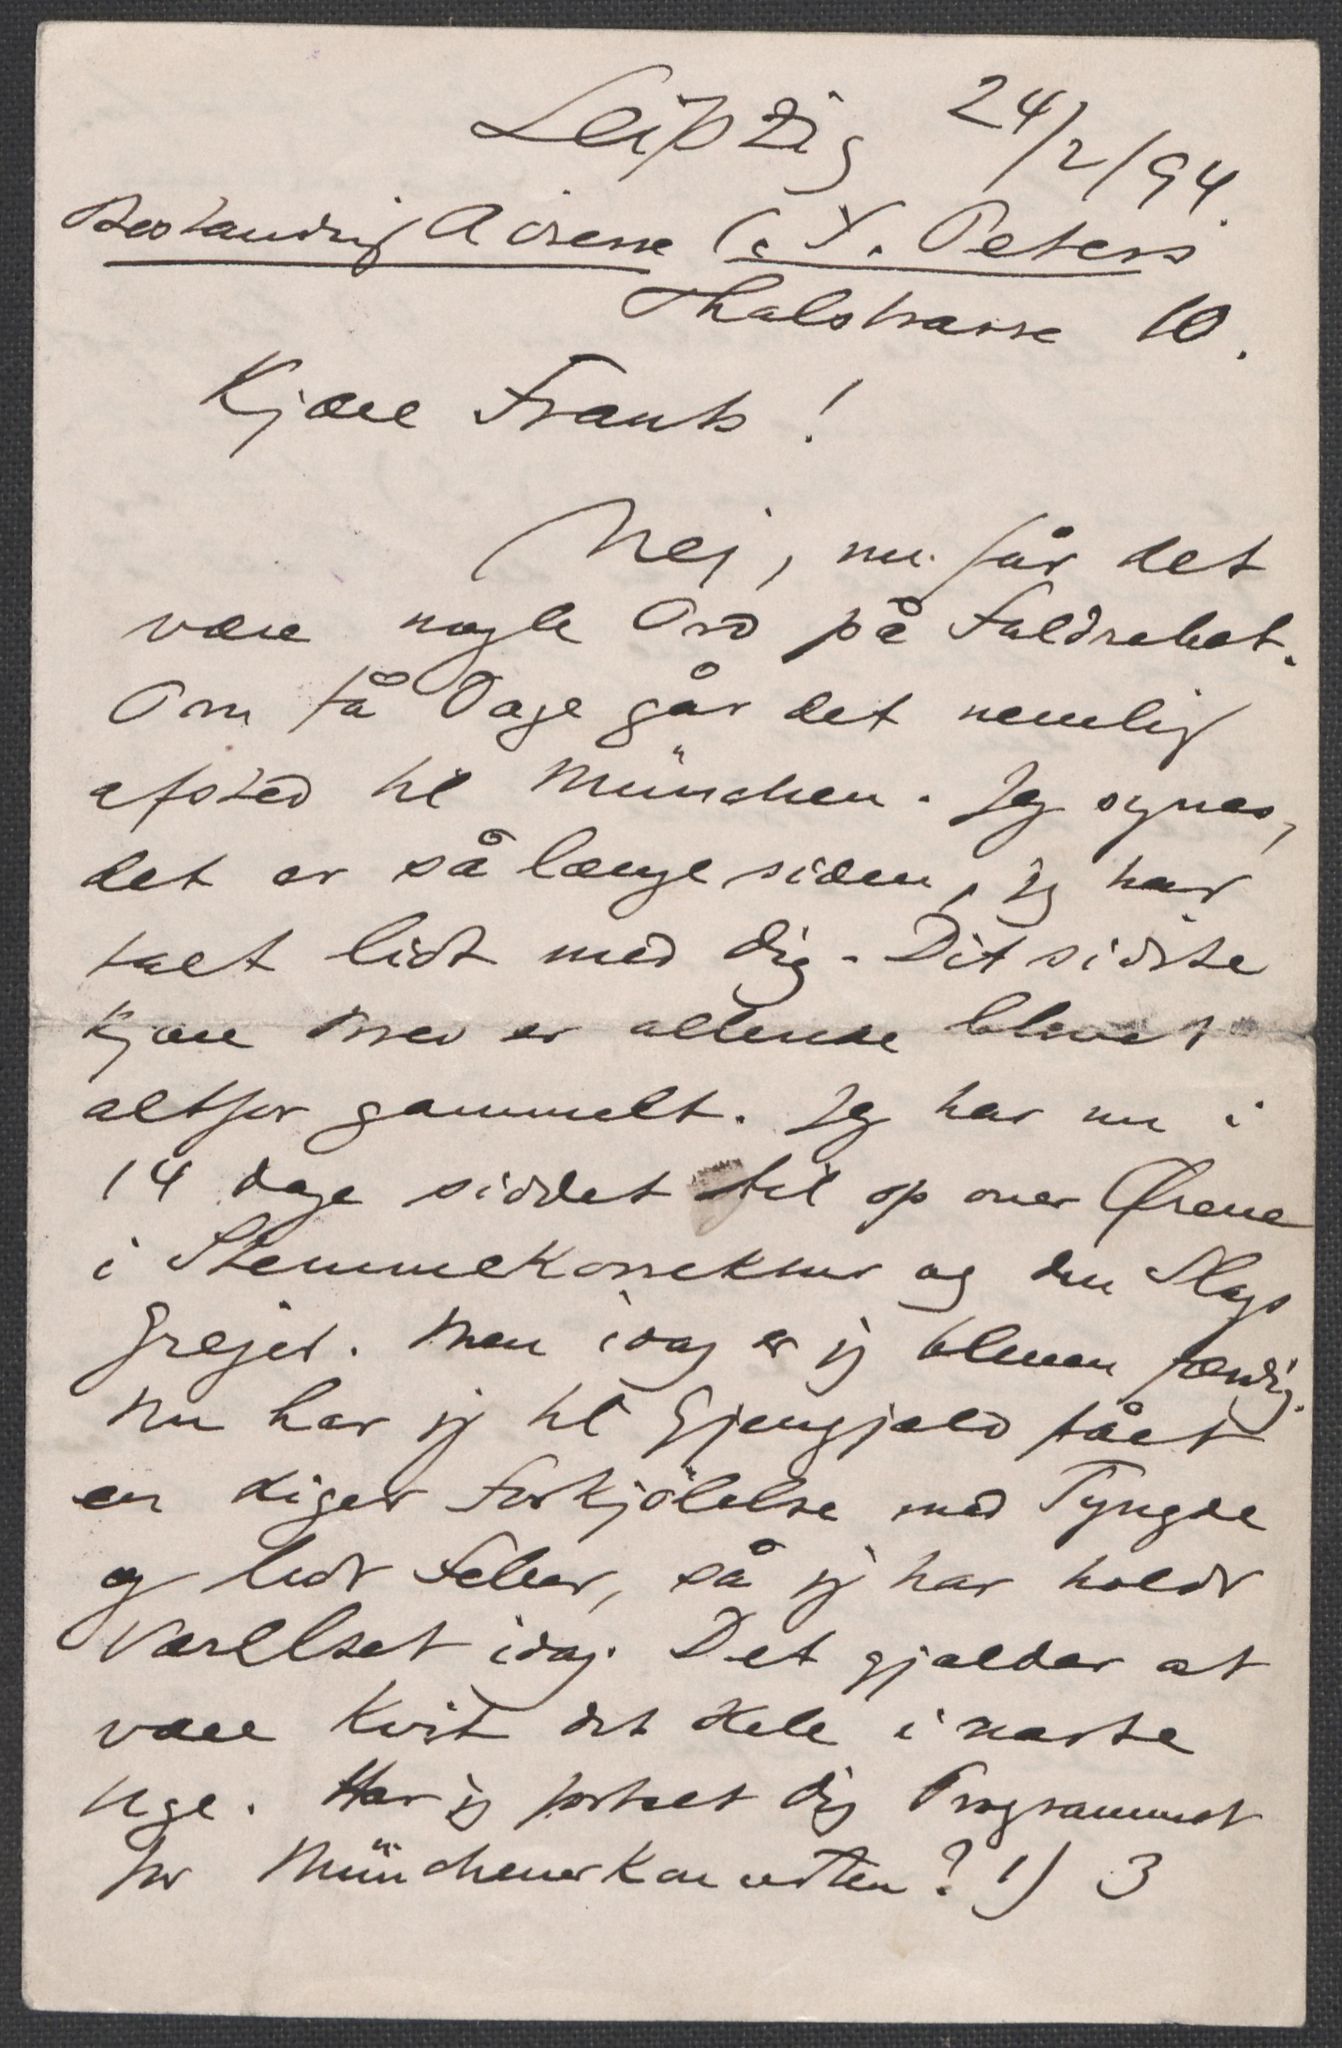 Leipzig 24/2/94.
Bestandig Adresse C. F. Peters
Thalstrasse 10.
Kjære Frants!
Nej, nu får det
være nogle Ord på Faldrebet.
Om få Dage går det nemlig
afsted til München. Jeg synes,
det er så længe siden, jeg har
talt lidt med dig. Dit sidste
kjære Brev er allerede blevet
altfor gammelt. Jeg har nu i
14 dage siddet til op over Ørene
i Stemmekorrektur og den Slags
Grejer. Men idag er jeg bleven færdig.
Nu har jeg til Gjengjæld fået
en diger Forkjölelse med Tyngde
og lidt Feber, så jeg har holdt
Værelset idag. Det gjælder at
være kvit det Hele i næste
Uge. Har jeg fortalt dig Programmet
for Münchenerkoncerten? 1) 3